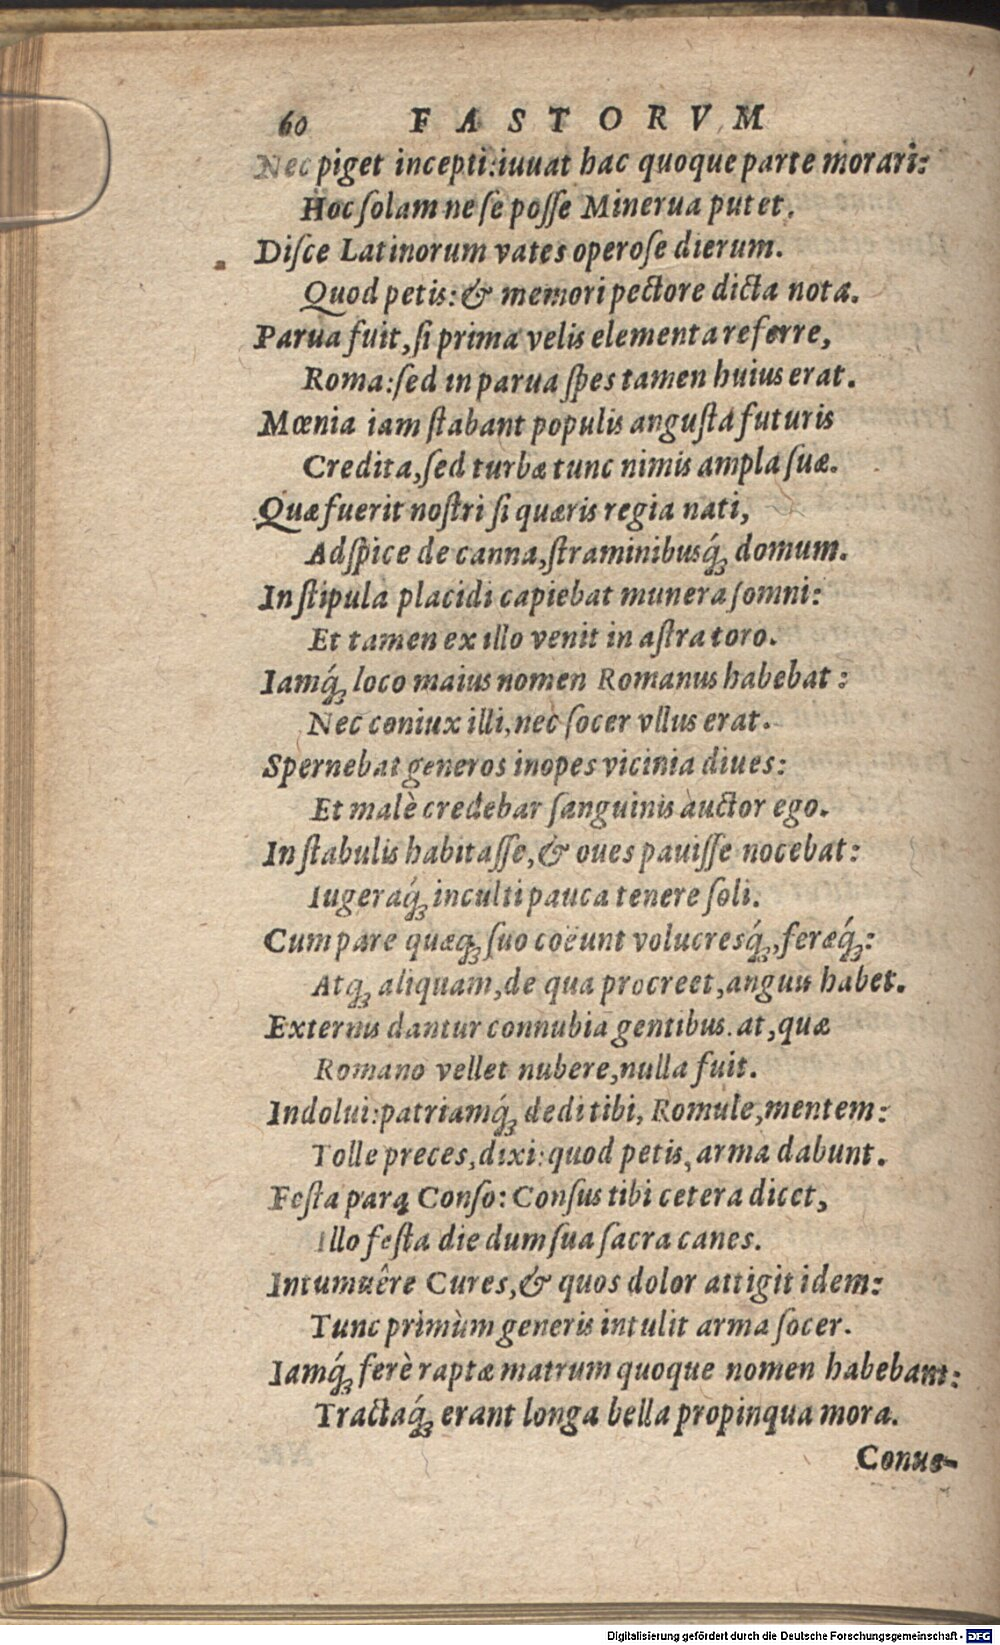 60 FASTORVM
Nec piget incepti:iuuat hac quoque parte morari:
Hoc ſolam ne ſe poſſe Minerua putet.
Diſce Latinorum vates operoſe dierum.
Quod petis: & memori pectore dicta nota.
Parua fuit, ſi prima velis elementa referre,
Roma:ſed in parua ſpes tamen huius erat.
Mœnia iam ſtabant populis anguſta futuris
Credita, ſed turbæ tunc nimis ampla ſuæ.
Quæ fuerit noſtri ſi quæris regia nati,
Adſpice de canna, ſtraminibusq́; domum.
In ſtipula placidi capiebat munera ſomni:
Et tamen ex illo venit in aſtra toro.
Iamq́; loco maius nomen Romanus habebat:
Nec coniux illi, nec ſocer vllus erat.
Spernebat generos inopes vicinia diues:
Et malè credebar ſanguinis auctor ego.
In ſtabulis habitaſſe, & oues pauiſſe nocebat:
Iugeraq́; inculti pauca tenere ſoli.
Cum pare quæq; ſuo coëunt volucresq́;, feræq́;:
Atq; aliquam, de qua procreet, anguis habet.
Externis dantur connubia gentibus. at, quæ
Romano vellet nubere, nulla fuit.
Indolui:patriamq́; dedi tibi, Romule, mentem:
Tolle preces, dixi:quod petis, arma dabunt.
Feſta para Conſo: Conſus tibi cetera dicet,
Illo feſta die dum ſua ſacra canes.
Intumuêre Cures, & quos dolor attigit idem:
Tunc primùm generis intulit arma ſocer.
Iamq́; ferè raptæ matrum quoque nomen habebant:
Tractaq́; erant longa bella propinqua mora.
Conue-
Digitalisierung gefördert durch die Deutsche Forschungsgemeinschaft - DFG